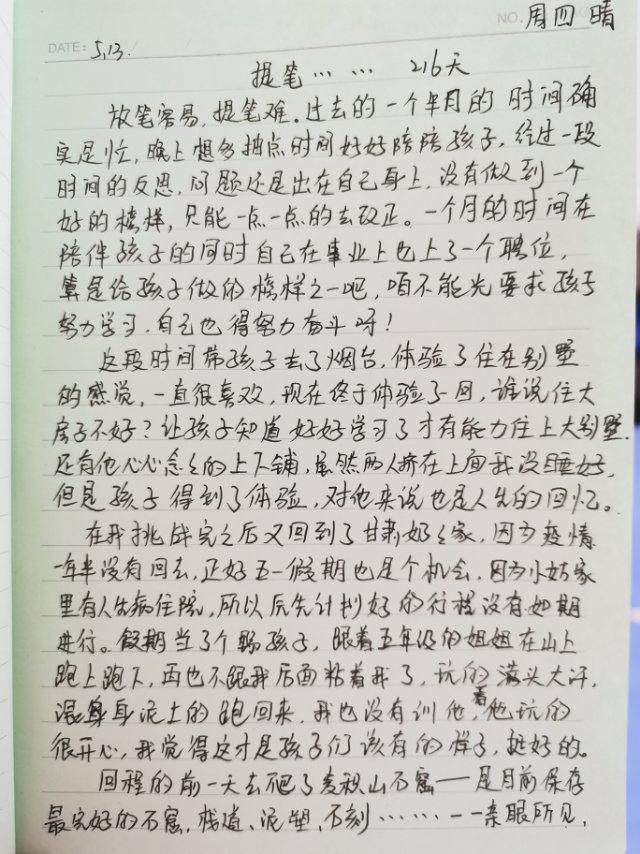 NO. 周四 晴
DATE: 5,13.
提笔…… 216天
放笔容易,提笔难.过去的一个半月的时间确
实是忙,晚上想多抽点时间好好陪陪孩子,经过一段
时间的反思,问题还是出在自己身上,没有做到一个
好的榜样,只能一点一点的去改正。一个月的时间在
陪伴孩子的同时自己在事业上也上了一个聘位,
算是给孩子做的榜样之一吧,咱不能光要求孩子
努力学习,自己也得努力奋斗呀!
这段时间带孩子去了烟台,体验了住在别墅
的感觉,一直很喜欢,现在终于体验了一回,谁说住大
房子不好?让孩子知道好好学习了才有能力住上大别墅.
还有他心心念念的上下铺,虽然两人挤在上面我没睡好,
但是孩子得到了体验,对他来说也是人生的回忆。
在我挑战完之后又回到了甘肃奶奶家,因为疫情
一年半没有回去,正好五一假期也是个机会,因为小姑家
里有人生病住院,所以原先计划好的行程没有如期
进行。假期当了个野孩子,跟着五年级的姐姐在山上
跑上跑下,再也不跟我后面粘着我了,玩的满头大汗,
混身泥土的跑回来,我也没有训他,看他玩的
很开心,我觉得这才是孩子们该有的样子,挺好的。
回程的前一天去爬了麦积山石窟——是目前保存
最完好的石窟,栈道、泥塑、石刻……一一亲眼所见,